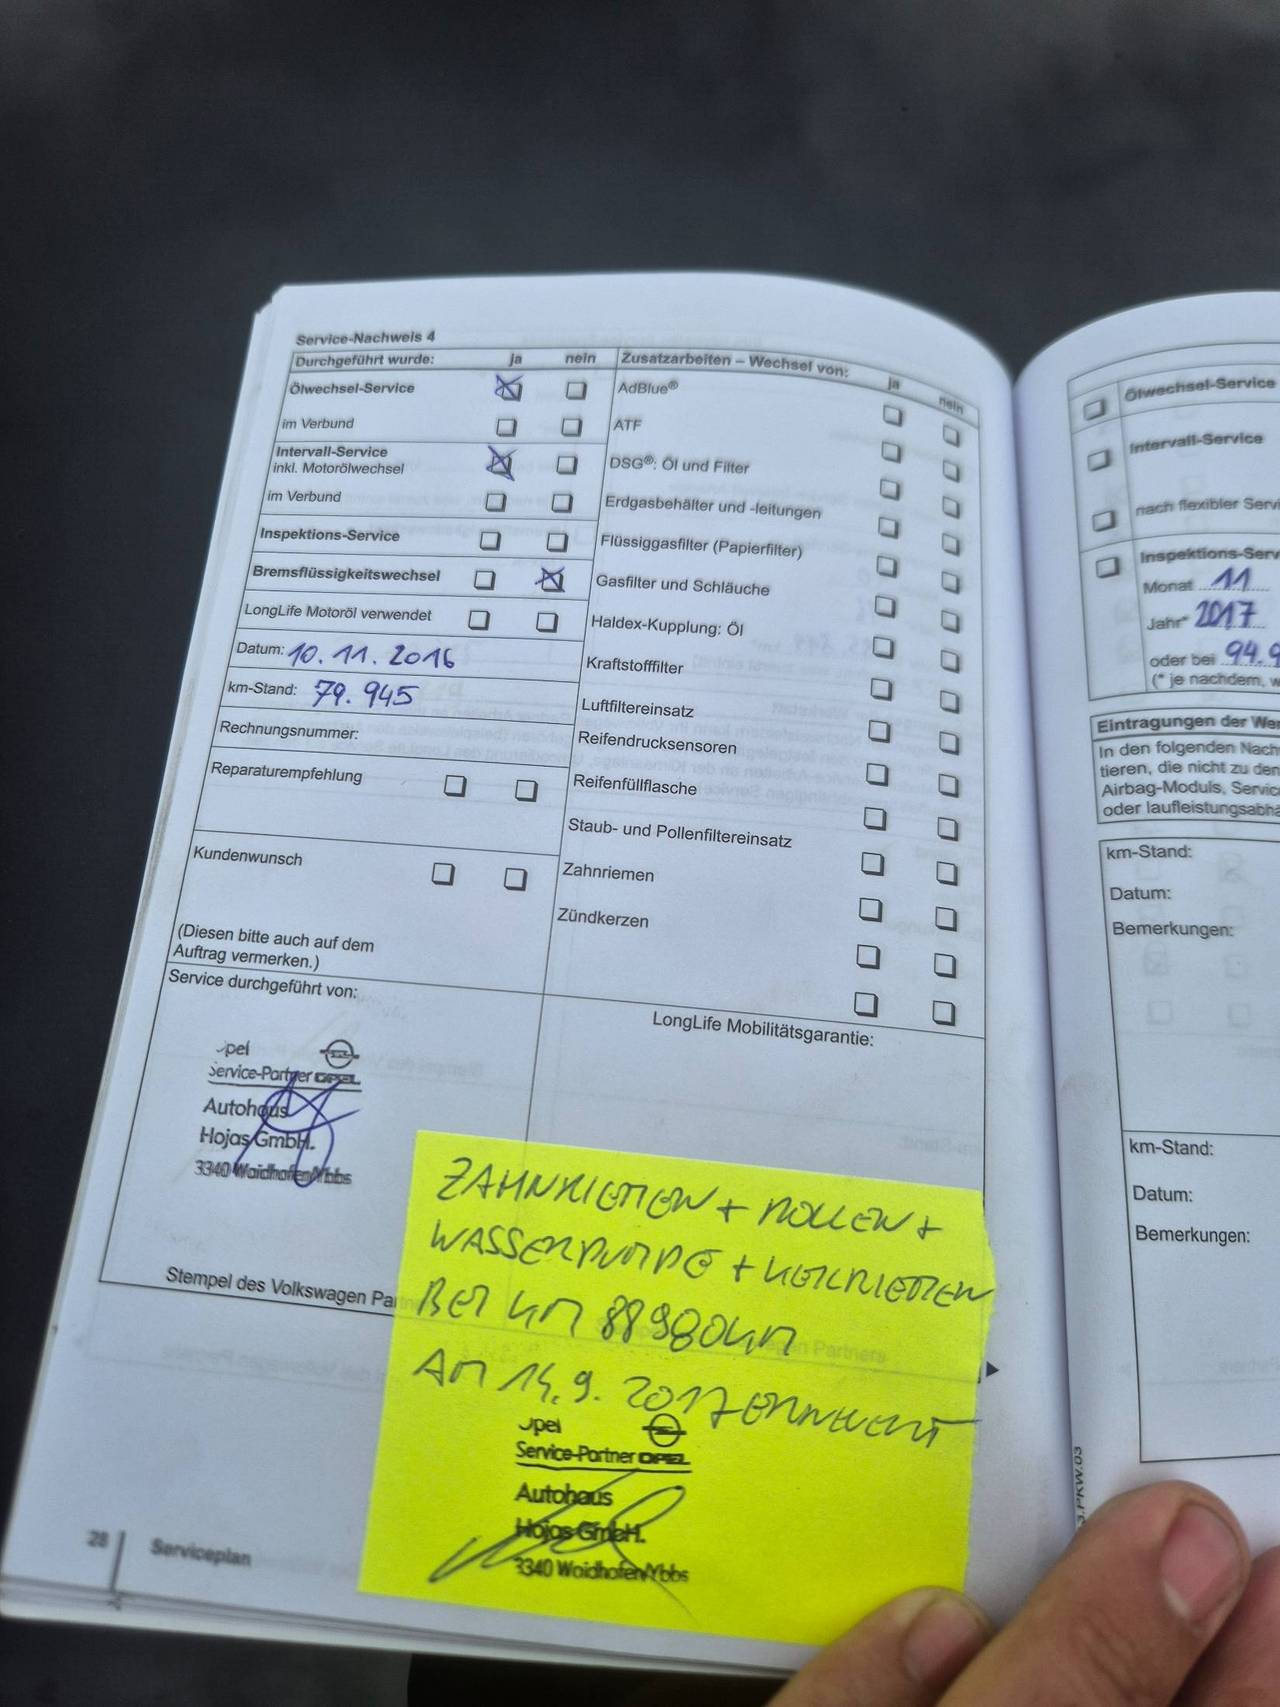 Service-Nachweis 4
Durchgeführt wurde: ja nein
Ölwechsel-Service
im Verbund
Intervall-Service
inkl. Motorölwechsel
im Verbund
Inspektions-Service
Bremsflüssigkeitswechsel
LongLife Motoröl verwendet
Datum: 10.11.2016
km-Stand: 79.945
Rechnungsnummer:
Reparaturempfehlung
Kundenwunsch
(Diesen bitte auch auf dem
Auftrag vermerken.)
Service durchgeführt von:
pel
Service-Partner OPEL
Autohaus
Hojas GmbH.
3340 Waidhofen/Ybbs
Stempel des Volkswagen Par
Zusatzarbeiten – Wechsel von: ja nein
AdBlue®
ATF
DSG®: Öl und Filter
Erdgasbehälter und -leitungen
Flüssiggasfilter (Papierfilter)
Gasfilter und Schläuche
Haldex-Kupplung: Öl
Kraftstofffilter
Luftfiltereinsatz
Reifendrucksensoren
Reifenfüllflasche
Staub- und Pollenfiltereinsatz
Zahnriemen
Zündkerzen
LongLife Mobilitätsgarantie:
ZAHNRIEMEN + ROLLEN +
WASSERPUMPE + KEILRIEMEN
BEI KM 88980KM
AM 14.9.2017 ERNEUERT
pel
Service-Partner OPEL
Autohaus
Hojas GmbH.
3340 Waidhofen/Ybbs
28 Serviceplan
Ölwechsel-Service
Intervall-Service
nach flexibler Servi
Inspektions-Serv
Monat 11
Jahr* 2017
oder bei 94.9
(* je nachdem, w
Eintragungen der Wer
In den folgenden Nach
tieren, die nicht zu den
Airbag-Moduls, Servic
oder laufleistungsabhä
km-Stand:
Datum:
Bemerkungen:
km-Stand:
Datum:
Bemerkungen:
3.PKW.03